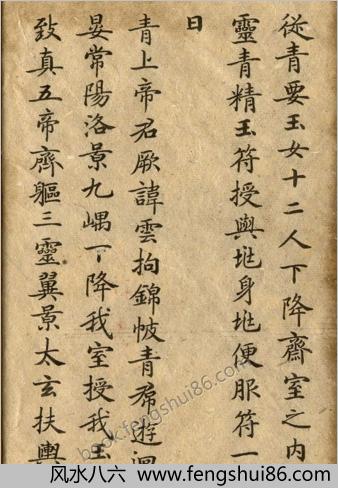 從青要玉女十二人下降齋室之内
靈青精玉符授與兆身兆便服符一
曰
青上帝君厥諱雲拘錦帔青帬遊迴
晏常陽洛景九嵎下降我室授我玉
致真五帝齊軀三靈翼景太玄扶輿
book.fengshui86.com
风水八六 www.fengshui86.com